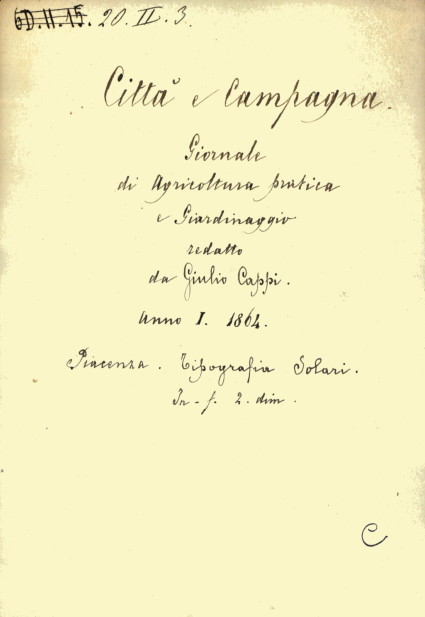 6D.II.15. 20. II. 3.
Città e Campagna.
Giornale
di Agricoltura pratica
e Giardinaggio
redatto
da Giulio Cappi.
Anno I. 1864.
Piacenza. Tipografia Solari.
In-f. 2. dim.
C